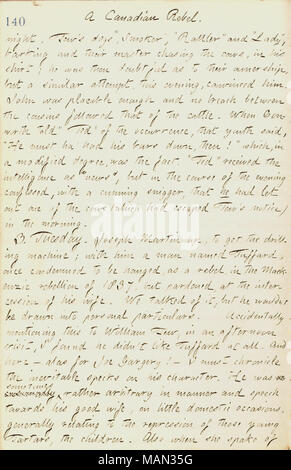 140
A Canadian Rebel.
night, Tew's dogs, "Smoker," "Rattler" and "Lady,"
barking and their master chasing the cows, in his
shirt; he was then doubtful as to their ownership,
but a similar attempt, this evening, convinced him.
John was placable enough and no breach between
the cousins followed that of the cattle. When Con-
worth told "Ted" of the occurrence, that youth said,
"He must ha' had his burs down, then!" which, in
a modified degree, was the fact. "Ted" received the
intelligence as "news", but in the course of the evening
confessed, with a cunning snigger, that he had let
out one of the cows (which had escaped Tew's notice)
in the morning.
3. Tuesday. Joseph Martin up, to get the drill-
ing machine; with him a man named Tufford,
once condemned to be hanged as a rebel in the Mack-
enzie rebellion of 1837, but pardoned at the inter-
cession of his wife. We talked of it, but he wouldn't
be drawn into personal particulars. Accidentally
mentioning this to William Tew, in an afternoon
visit, I found he didn't like Tufford at all. And
here - alas for Joe Gargery! - I must chronicle
the inevitable specks on his character. He was
sometimes
rather arbitrary in manner and speech
towards his good wife, on little domestic occasions,
generally relating to the repression of those young
Tartars, the children. Also when she spoke of
alamy
Image ID: MAN35G
www.alamy.com